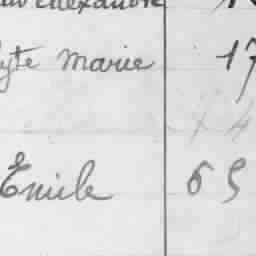 Alexandre
yte Marie 17
Emile 65